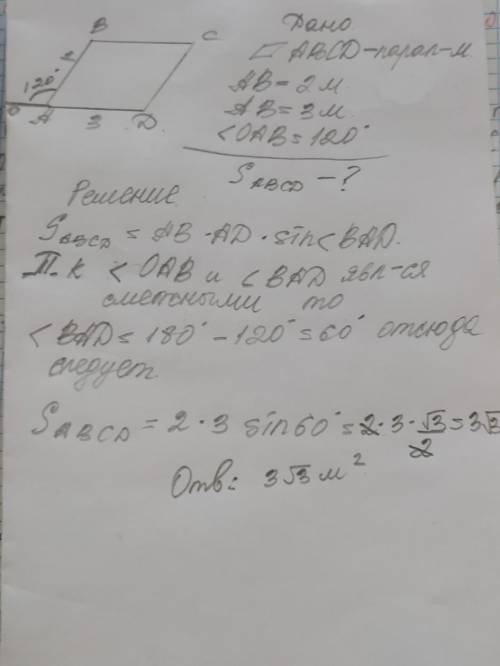 B
C
2
120°
O
A
3
D
Дано
ABCD-парал-м.
AB = 2 м.
AB = 3 м.
<OAB = 120°
S ABCD - ?
Решение
S ABCD = AB · AD · sin<BAD.
Т.к <OAB и <BAD явл-ся
смежными то
<BAD = 180° - 120° = 60° отсюда
следует
S ABCD = 2 · 3 sin60° = 2 · 3 · √3/2 = 3√3
Отв: 3√3 м²